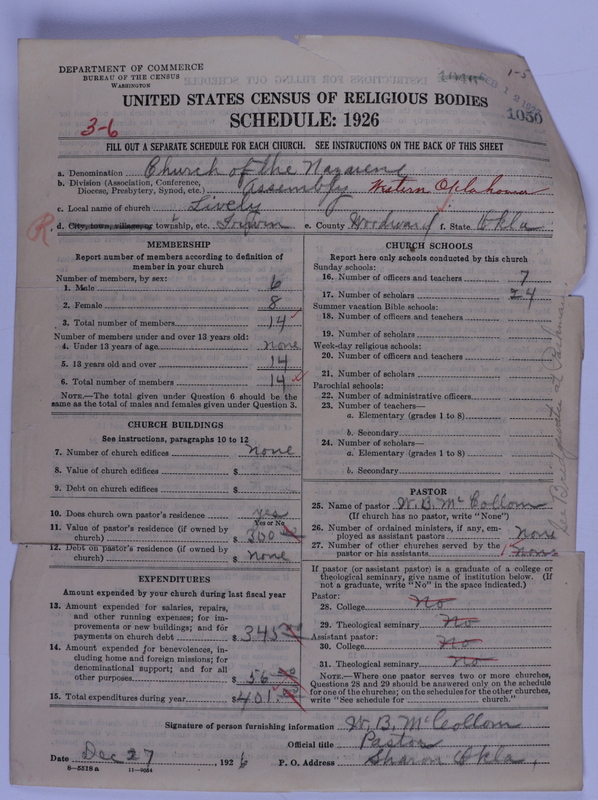 DEPARTMENT OF COMMERCE
BUREAU OF THE CENSUS
WASHINGTON
1-5
1050
UNITED STATES CENSUS OF RELIGIOUS BODIES
SCHEDULE: 1926
3-6
FILL OUT A SEPARATE SCHEDULE FOR EACH CHURCH. SEE INSTRUCTIONS ON THE BACK OF THIS SHEET
a. Denomination Church of the Nazarene
b. Division (Association, Conference, Diocese, Presbytery, Synod, etc.) Assembly Western Oklahoma
c. Local name of church Lively
R
d. City, town, village, or township, etc. e. County Woodward f. State Okla
MEMBERSHIP
Report number of members according to definition of
member in your church
Number of members, by sex:
1. Male 6
2. Female 8
3. Total number of members 14
Number of members under and over 13 years old:
4. Under 13 years of age none
5. 13 years old and over 14
6. Total number of members 14
NOTE.—The total given under Question 6 should be the
same as the total of males and females given under Question 3.
CHURCH BUILDINGS
See instructions, paragraphs 10 to 12
7. Number of church edifices none
8. Value of church edifices $
9. Debt on church edifices $
10. Does church own pastor's residence? yes
Yes or No
11. Value of pastor's residence (if owned by
church) $ 300
12. Debt on pastor's residence (if owned by
church) $ none
EXPENDITURES
Amount expended by your church during last fiscal year
13. Amount expended for salaries, repairs,
and other running expenses; for im-
provements or new buildings; and for
payments on church debt $ 345
14. Amount expended for benevolences, in-
cluding home and foreign missions; for
denominational support; and for all
other purposes $ 56
15. Total expenditures during year $ 401
CHURCH SCHOOLS
Report here only schools conducted by this church
Sunday schools:
16. Number of officers and teachers 7
17. Number of scholars 24
Summer vacation Bible schools:
18. Number of officers and teachers
19. Number of scholars
Week-day religious schools:
20. Number of officers and teachers
21. Number of scholars
Parochial schools:
22. Number of administrative officers
23. Number of teachers—
a. Elementary (grades 1 to 8)
b. Secondary
24. Number of scholars—
a. Elementary (grades 1 to 8)
b. Secondary
PASTOR
25. Name of pastor W. B. McCollom
(If church has no pastor, write "None")
26. Number of ordained ministers, if any, em-
ployed as assistant pastors None
27. Number of other churches served by the
pastor or his assistants none
If pastor (or assistant pastor) is a graduate of a college or
theological seminary, give name of institution below. (If
not a graduate, write "No" in the space indicated.)
Pastor:
28. College No
29. Theological seminary No
Assistant pastor:
30. College No
31. Theological seminary No
NOTE.—Where one pastor serves two or more churches,
Questions 28 and 29 should be answered only on the schedule
for one of the churches; on the schedules for the other churches,
write "See schedule for church."
Signature of person furnishing information W. B. McCollom
Official title Pastor
Date Dec 27, 1926 P. O. Address Sharon Okla,
8-5318a 11-9064